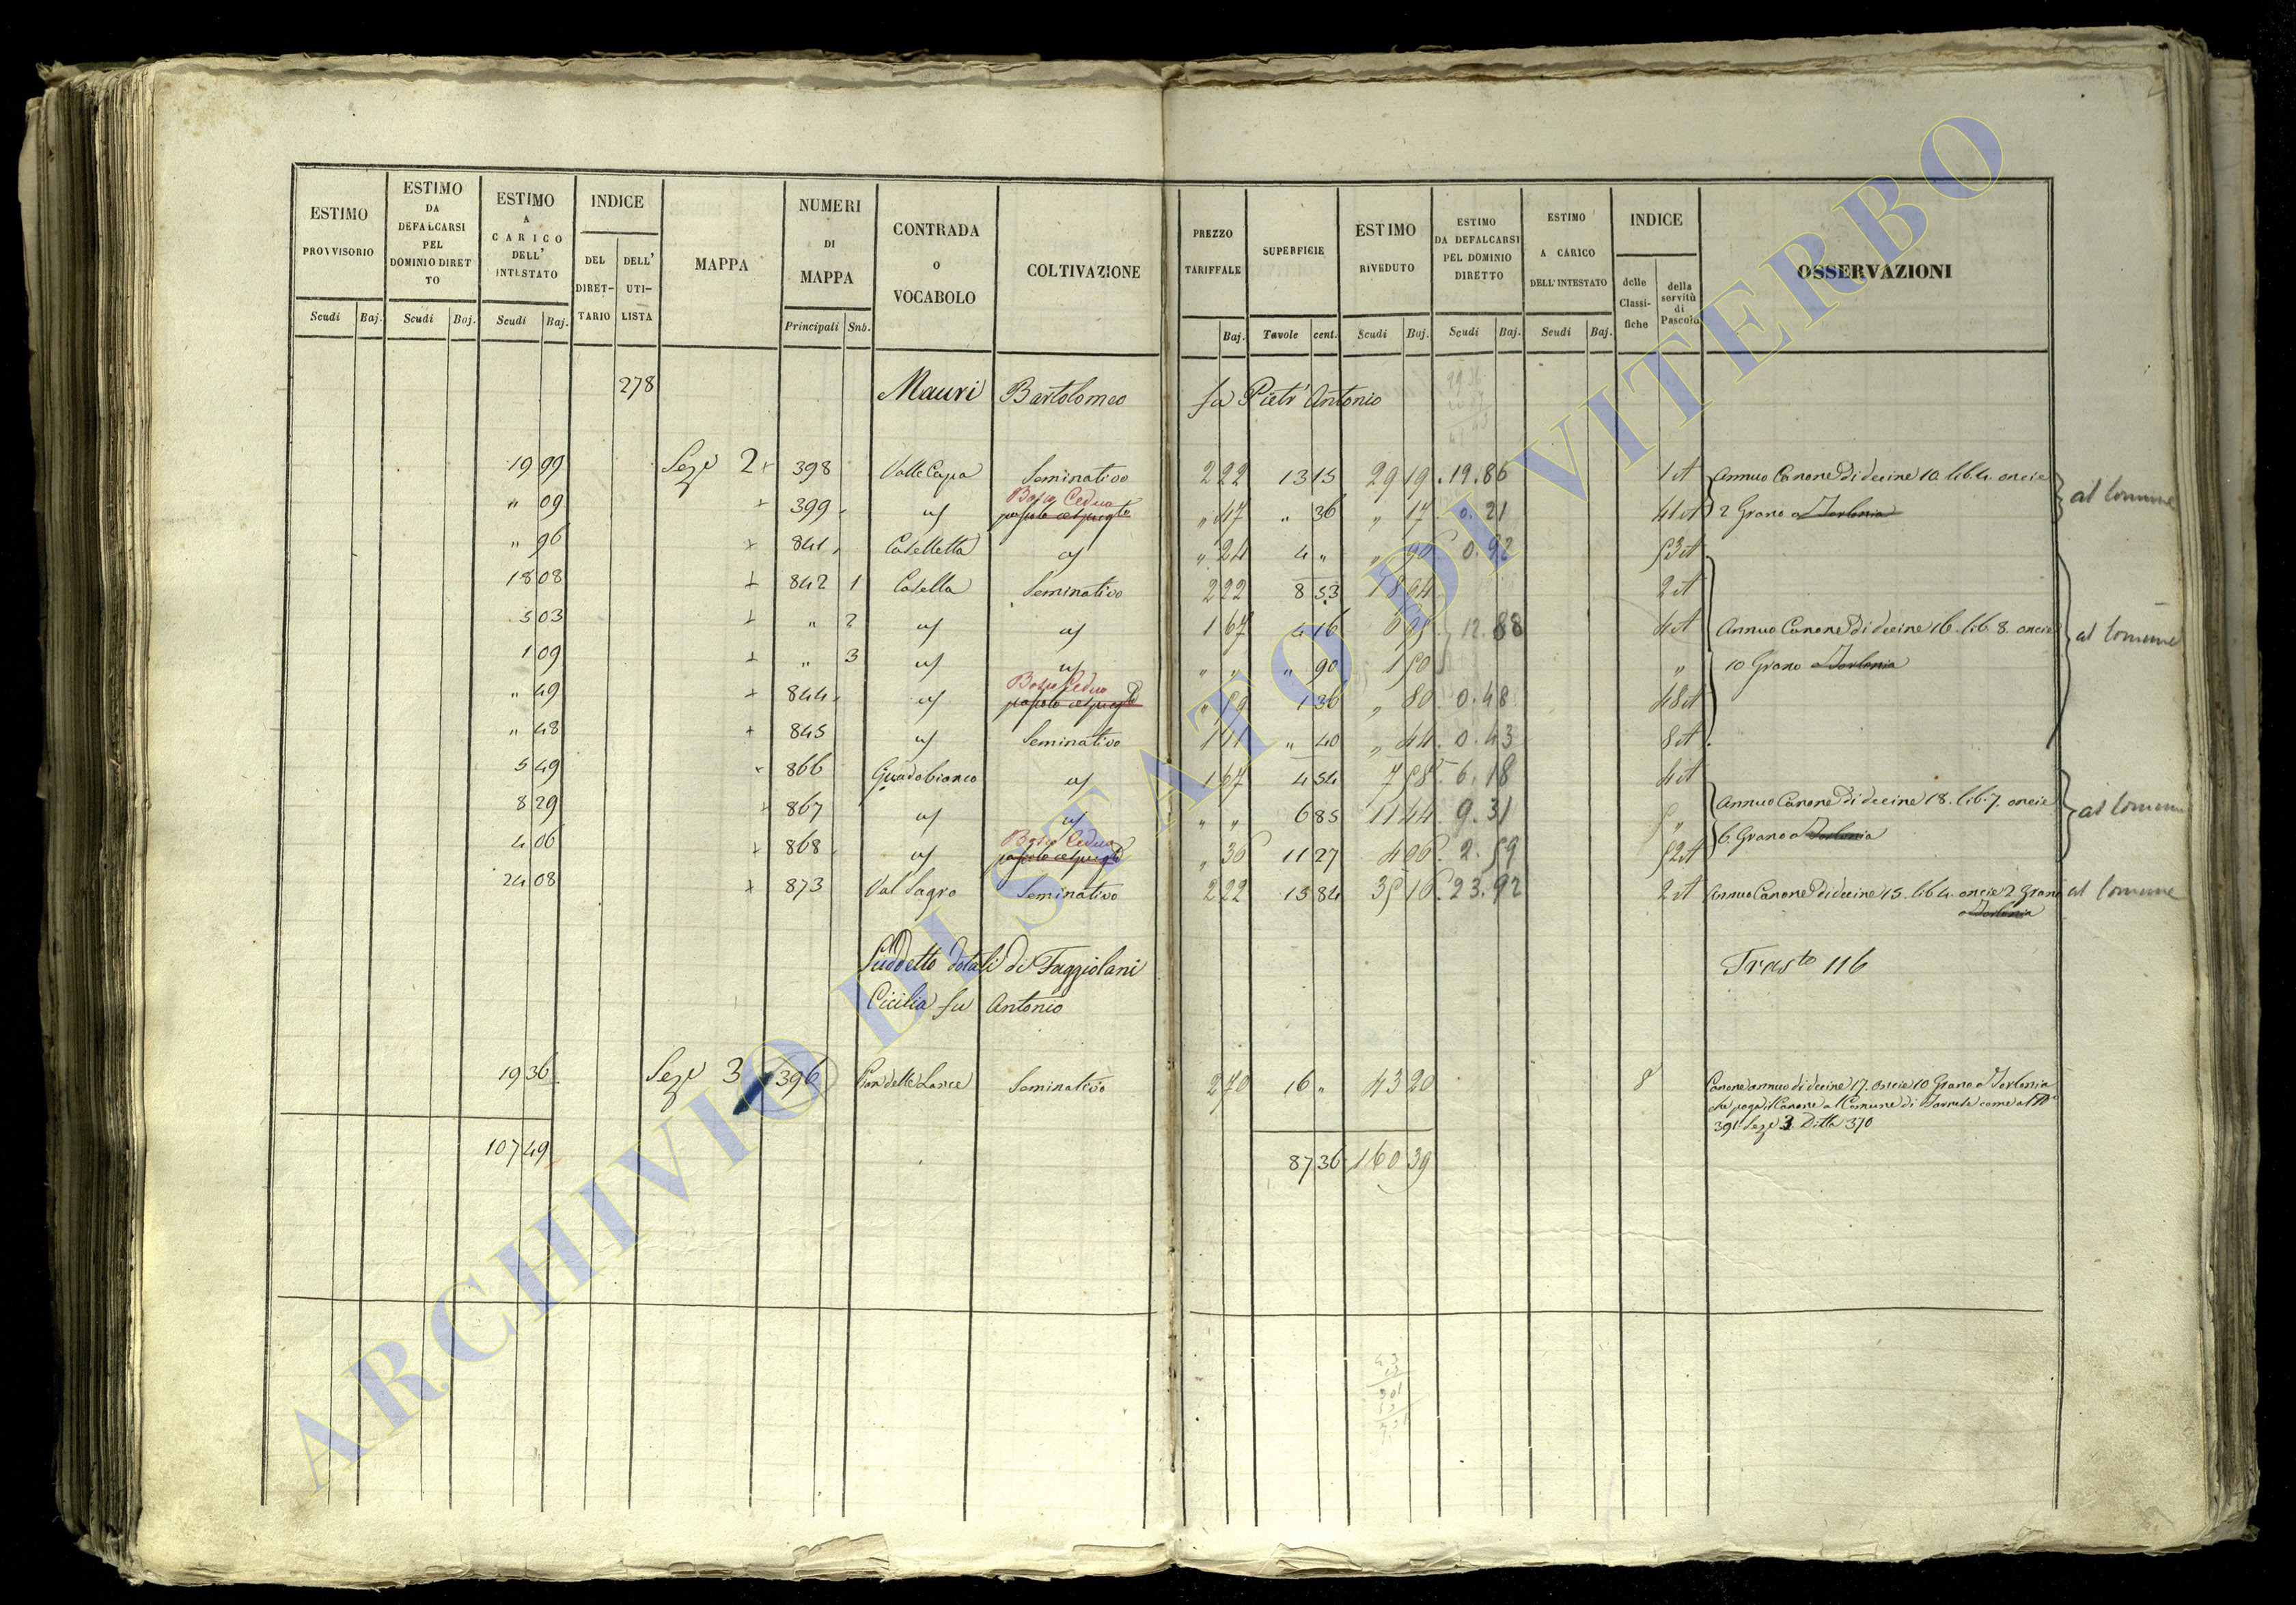 ESTIMO PROVVISORIO
ESTIMO DA DEFALCARSI PEL DOMINIO DIRETTO
ESTIMO A CARICO DELL' INTESTATO
INDICE
DEL DIRETTARIO
DELL' UTILISTA
MAPPA
NUMERI DI MAPPA
CONTRADA O VOCABOLO
COLTIVAZIONE
PREZZO TARIFFALE
SUPERFICIE
ESTIMO RIVEDUTO
ESTIMO DA DEFALCARSI PEL DOMINIO DIRETTO
ESTIMO A CARICO DELL'INTESTATO
INDICE
delle Classifiche
della servitù di Pascolo
OSSERVAZIONI
Scudi Baj. Scudi Baj. Scudi Baj. Principali Sub. Baj. Tavole cent. Scudi Baj. Scudi Baj. Scudi Baj.
278 Mauri Bartolomeo fu Pietr' Antonio
19 99 Sez.e 2 + 398 Valle Cupa Seminativo 2 22 13 15 29 19 . 19.86 1 Annuo Canone di decine 10. lib. 4. oncie
Bosco Ceduo
" 09 + 399 " 47 " 36 " 17 0.21 2 Grano a Torlonia al Comune
" 96 + 841 Caselletta " 24 4 " " 96 0.92
18 08 + 842 1 Casella Seminativo 2 22 8 53 18 94 2
5 03 + " 2 1 67 4 16 12.88 4 Annuo Canone di decine 16. lib. 8. oncie al Comune
1 09 + " 3 " " " 90 1 50 " 10 Grano a Torlonia
Bosco Ceduo
" 49 + 844 1 36 " 80 0.48 48
" 48 + 845 Seminativo 1 11 " 40 " 44 . 0.43 8
5 49 + 866 Guadobianco 1 67 4 54 7 58 . 6.18 4
8 29 + 867 " " 6 85 11 44 9.31 " Annuo Canone di decine 18. lib. 7. oncie al Comune
Bosco Ceduo
4 06 + 868 " 36 11 27 4 06 . 2.59 52 6. Grano a Torlonia
24 08 + 873 Val Sagro Seminativo 2 22 15 84 35 16 . 23.92 2 Annuo Canone di decine 15. lib 4. oncie 2 Grano al Comune
a Torlonia
Suddetto dotali di Faggiolani
Cicilia fu Antonio
Trasto 116
19 36 Sez.e 3 396 Pian delle Lance Seminativo 2 70 16 " 43 20 8 Canone annuo di decine 17. oncie 10 Grano a Torlonia
che paga il Canone al Comune di come al N°
391 Sez.e 3. Ditta 370
107 49 87 36 160 39
ARCHIVIO DI STATO DI VITERBO